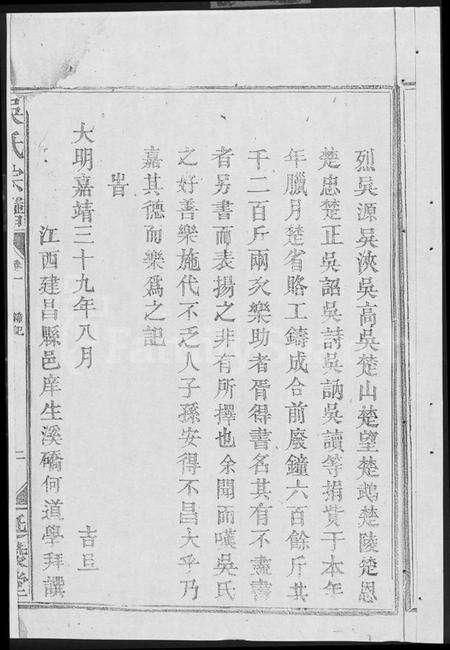 烈吳源吳浹吳高吳楚山楚望楚鵡楚陵楚恩
楚忠楚正吳詔吳詩吳訥吳讀等捐貲于本年
年臘月楚省賂工鑄成合前廢鐘六百餘斤其
千二百斤兩次樂助者胥得書名其有不盡書
者另書而表揚之非有所擇也余聞而嘆吳氏
之好善樂施代不乏人子孫安得不昌大乎乃
嘉其德而樂爲之記
旹
大明嘉靖三十九年八月 吉旦
江西建昌縣邑庠生溪礄何道學拜譔
吳氏宗譜 卷一 鐘記 二